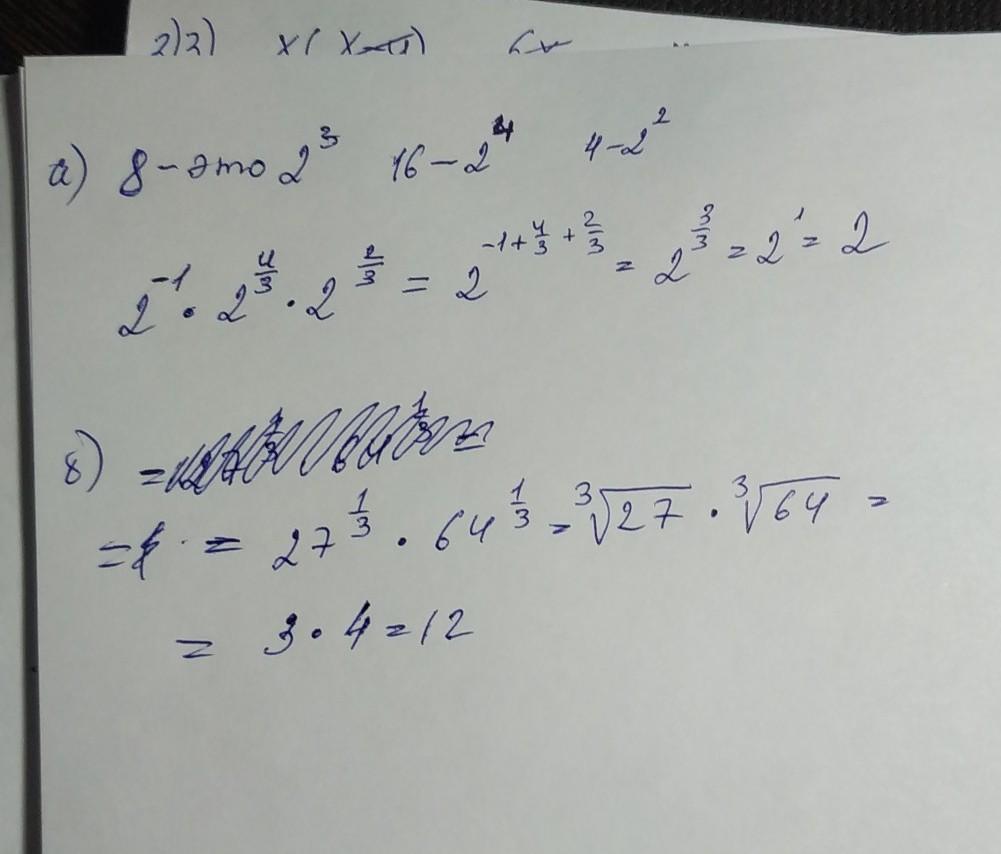 2)2) x(
а) 8 - это 2³ 16 - 2⁴ 4 - 2²
2^{-1} · 2^{4/3} · 2^{2/3} = 2^{-1 + 4/3 + 2/3} = 2^{3/3} = 2¹ = 2
б) =
= = 27^{1/3} · 64^{1/3} = ∛27 · ∛64 =
= 3 · 4 = 12